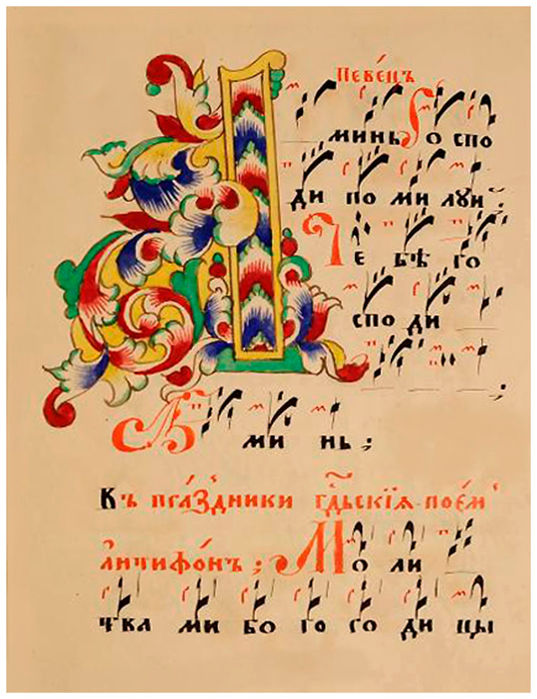 Певе́нъ
А минь Го спо
ди по ми луи:
Те бѣ го
спо ди
;
А ми нь ;
Къ пра́здники гд҃ьскїѧ пое́м
антифо́нъ ; Мо ли
тва ми бо го ро ди цы